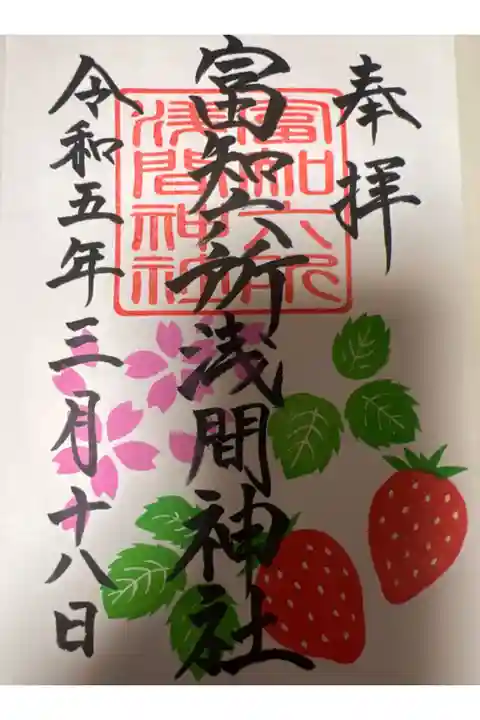 奉拝
富知六所浅間神社
富知六所
浅間神社
令和五年三月十八日